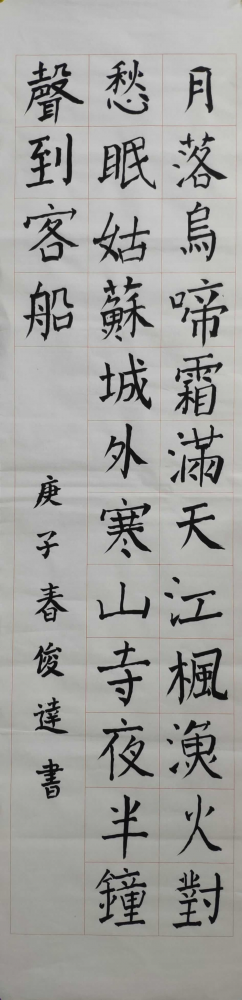 月落烏啼霜滿天江楓漁火對
愁眠姑蘇城外寒山寺夜半鐘
聲到客船
庚子春俊達書